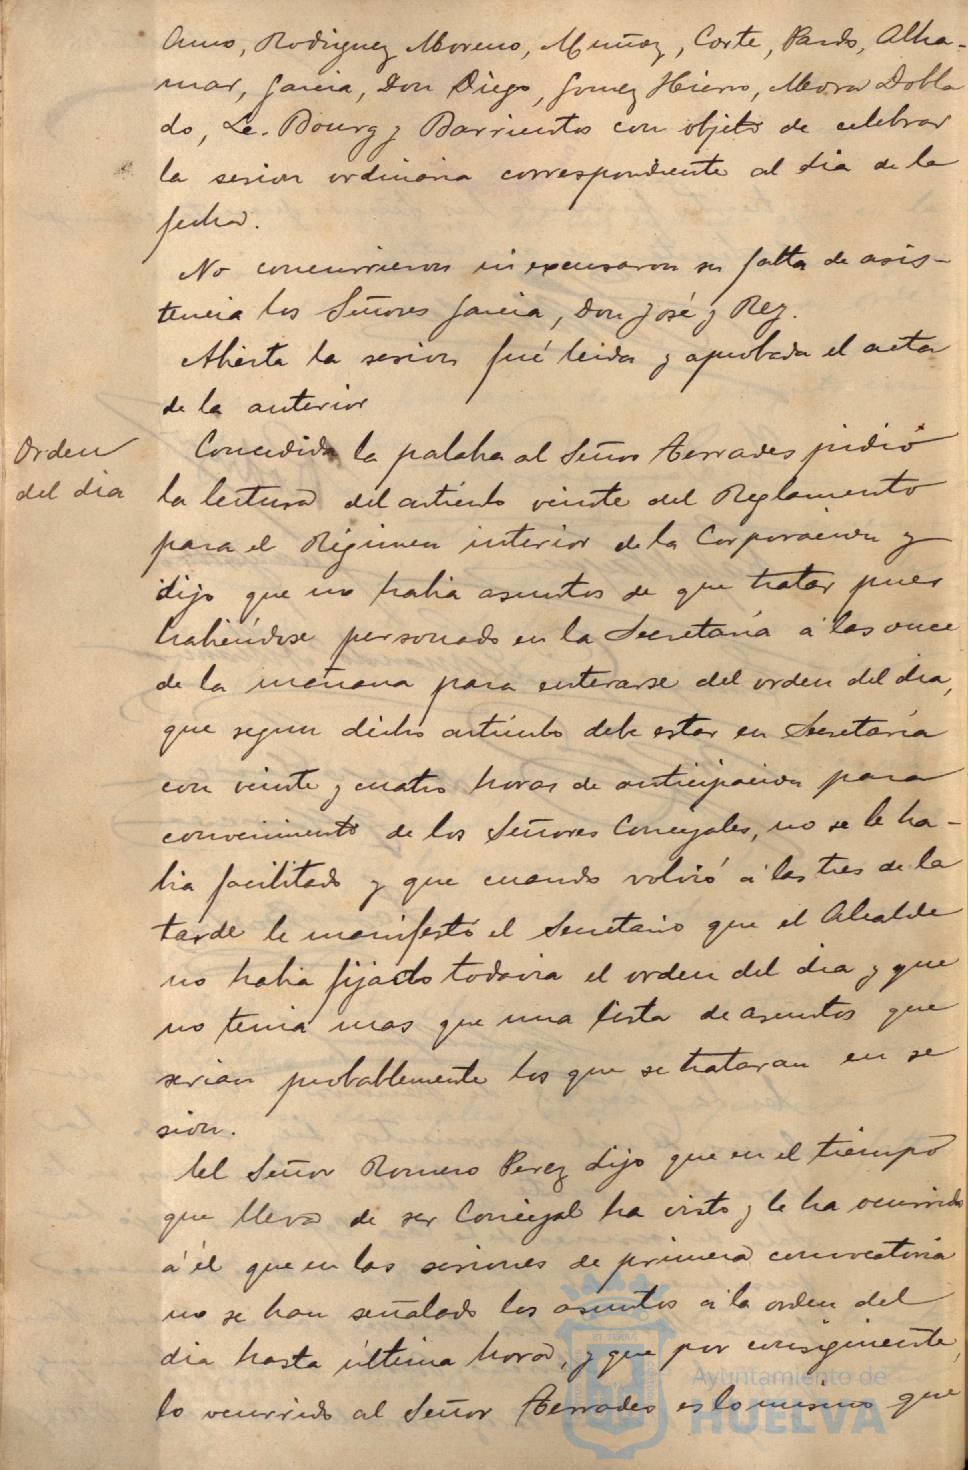 Amo, Rodriguez Moreno, Muñoz, Corte, Pardo, Alha-
mar, Garcia, Don Diego, Gomez Hierro, Mora Dobla
do, Le-Bourg y Barrientos con objeto de celebrar
la sesion ordinaria correspondiente al dia de la
fecha.
No concurrieron ni excusaron su falta de asis-
tencia los Señores Garcia, Don José y Rey.
Abierta la sesion fué leida y aprobada el acta
de la anterior
Orden
del dia
Concedida la palabra al Señor Terrades pidió
la lectura del artículo veinte del Reglamento
para el Régimen interior de la Corporación y
dijo que no habia asuntos de que tratar pues
habiéndose personado en la Secretaría á las once
de la mañana para enterarse del orden del dia,
que segun dicho artículo debe estar en Secretaría
con veinte y cuatro horas de anticipacion para
conocimiento de los Señores Concejales, no se le ha-
bia facilitado y que cuando volvió á las tres de la
tarde le manifestó el Secretario que el Alcalde
no habia fijado todavia el orden del dia y que
no tenia mas que una lista de asuntos que
serian probablemente los que se trataran en se
sion.
El Señor Romero Perez dijo que en el tiempo
que lleva de ser Concejal ha visto y le ha ocurrido
á él que en las sesiones de primera convocatoria
no se han señalado los asuntos á la orden del
dia hasta última hora, y que por consiguiente,
lo ocurrido al Señor Terrades es lo mismo que
Ayuntamiento de
HUELVA